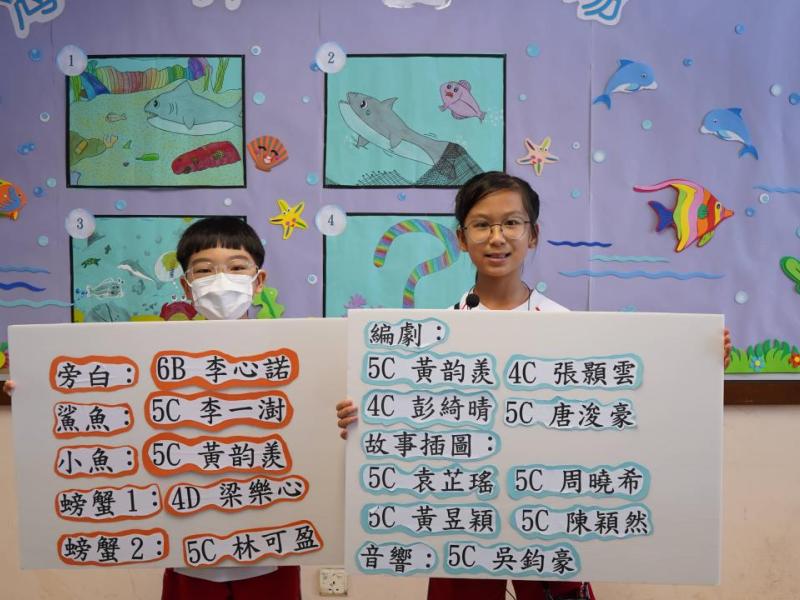 1
2
3
4
旁白： 6B 李心諾
鯊魚： 5C 李一澍
小魚： 5C 黃韵羡
螃蟹1： 4D 梁樂心
螃蟹2： 5C 林可盈
編劇：
5C 黃韵羡 4C 張顥雲
4C 彭綺晴 5C 唐浚豪
故事插圖：
5C 袁芷瑤 5C 周曉希
5C 黃昱穎 5C 陳穎然
音響： 5C 吳鈞豪